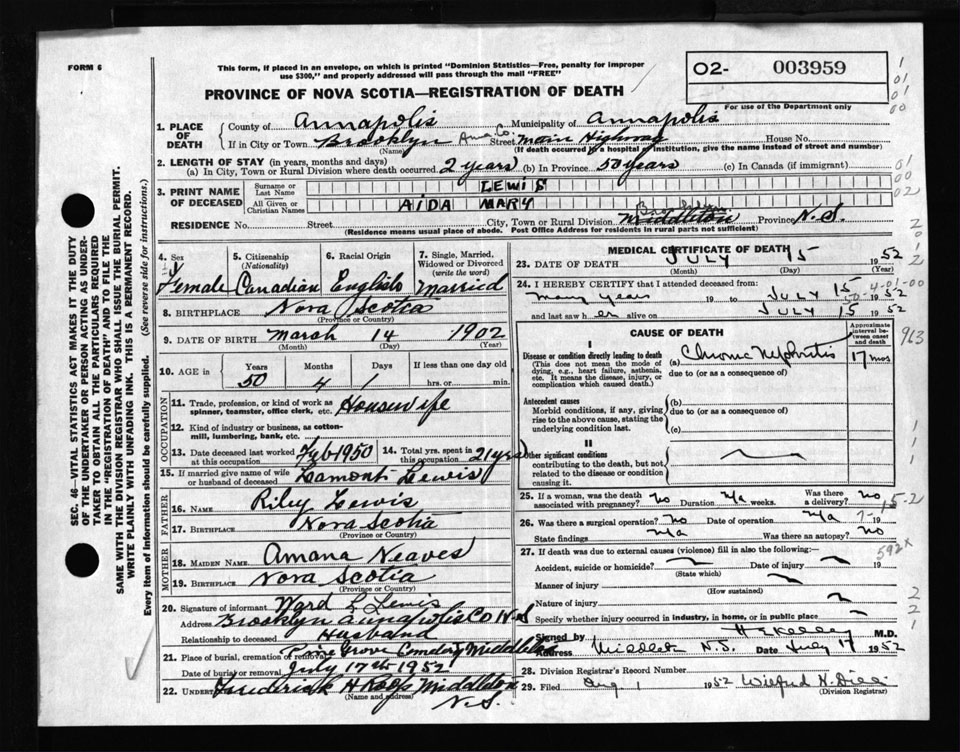 FORM 6
This form, if placed in an envelope, on which is printed "Dominion Statistics—Free, penalty for improper
use $300," and properly addressed will pass through the mail "FREE"
PROVINCE OF NOVA SCOTIA—REGISTRATION OF DEATH
O2- 003959
For use of the Department only
1. PLACE OF DEATH
County of Annapolis Municipality of Annapolis
If in City or Town Brooklyn Anna. Co. Street Main Highway House No.
(Name) (If death occurred in a hospital or institution, give the name instead of street and number)
2. LENGTH OF STAY (in years, months and days)
(a) In City, Town or Rural Division where death occurred 2 years (b) In Province 50 years (c) In Canada (if immigrant)
3. PRINT NAME OF DECEASED
Surname or Last Name LEWIS
All Given or Christian Names AIDA MARY
RESIDENCE No. Street City, Town or Rural Division Middleton Province N.S.
(Residence means usual place of abode. Post Office Address for residents in rural parts not sufficient)
4. Sex Female
5. Citizenship (Nationality) Canadian
6. Racial Origin English
7. Single, Married, Widowed or Divorced (write the word) Married
8. BIRTHPLACE Nova Scotia
(Province or Country)
9. DATE OF BIRTH March 14 1902
(Month) (Day) (Year)
10. AGE in Years 50 Months 4 Days 1 If less than one day old hrs. or min.
OCCUPATION
11. Trade, profession, or kind of work as spinner, teamster, office clerk, etc. Housewife
12. Kind of industry or business, as cotton-mill, lumbering, bank, etc.
13. Date deceased last worked at this occupation Feb 1950 14. Total yrs. spent in this occupation 21 yrs
15. If married give name of wife or husband of deceased Lamont Lewis
FATHER
16. NAME Riley Lewis
17. BIRTHPLACE Nova Scotia
(Province or Country)
MOTHER
18. MAIDEN NAME Amana Neaves
19. BIRTHPLACE Nova Scotia
(Province or Country)
20. Signature of informant Ward L. Lewis
Address Brooklyn Annapolis Co N.S
Relationship to deceased Husband
21. Place of burial, cremation or removal Pine Grove Cemetery Middleton
Date of burial or removal July 17th 1952
22. UNDERTAKER Frederick H Middleton
(Name and address) N.S.
MEDICAL CERTIFICATE OF DEATH
23. DATE OF DEATH JULY 15 1952
(Month) (Day) (Year)
24. I HEREBY CERTIFY that I attended deceased from:
many years 19 to JULY 15 1952
and last saw her alive on JULY 15 1952
CAUSE OF DEATH
Approximate interval between onset and death
I
Disease or condition directly leading to death
(This does not mean the mode of dying, e.g., heart failure, asthenia, etc. It means the disease, injury, or complication which caused death.)
(a) Chronic Nephritis 17 mos
due to (or as a consequence of)
Antecedent causes
Morbid conditions, if any, giving rise to the above cause, stating the underlying condition last.
(b)
due to (or as a consequence of)
(c)
II
Other significant conditions
contributing to the death, but not related to the disease or condition causing it.
25. If a woman, was the death associated with pregnancy? no Duration n/a weeks. Was there a delivery? no
26. Was there a surgical operation? no Date of operation n/a 19
State findings n/a Was there an autopsy? no
27. If death was due to external causes (violence) fill in also the following:—
Accident, suicide or homicide? Date of injury 19
(State which)
Manner of injury
(How sustained)
Nature of injury
Specify whether injury occurred in industry, in home, or in public place
Signed by M.D.
Address Middleton N.S. Date July 17 1952
28. Division Registrar's Record Number
29. Filed Aug 1 1952 Wilfred H.
(Division Registrar)
SEC. 46—VITAL STATISTICS ACT MAKES IT THE DUTY
OF THE UNDERTAKER OR PERSON ACTING AS UNDERTAKER TO OBTAIN ALL THE PARTICULARS REQUIRED
IN THE "REGISTRATION OF DEATH" AND TO FILE THE
SAME WITH THE DIVISION REGISTRAR WHO SHALL ISSUE THE BURIAL PERMIT.
WRITE PLAINLY WITH UNFADING INK. THIS IS A PERMANENT RECORD.
Every item of information should be carefully supplied. (See reverse side for instructions.)